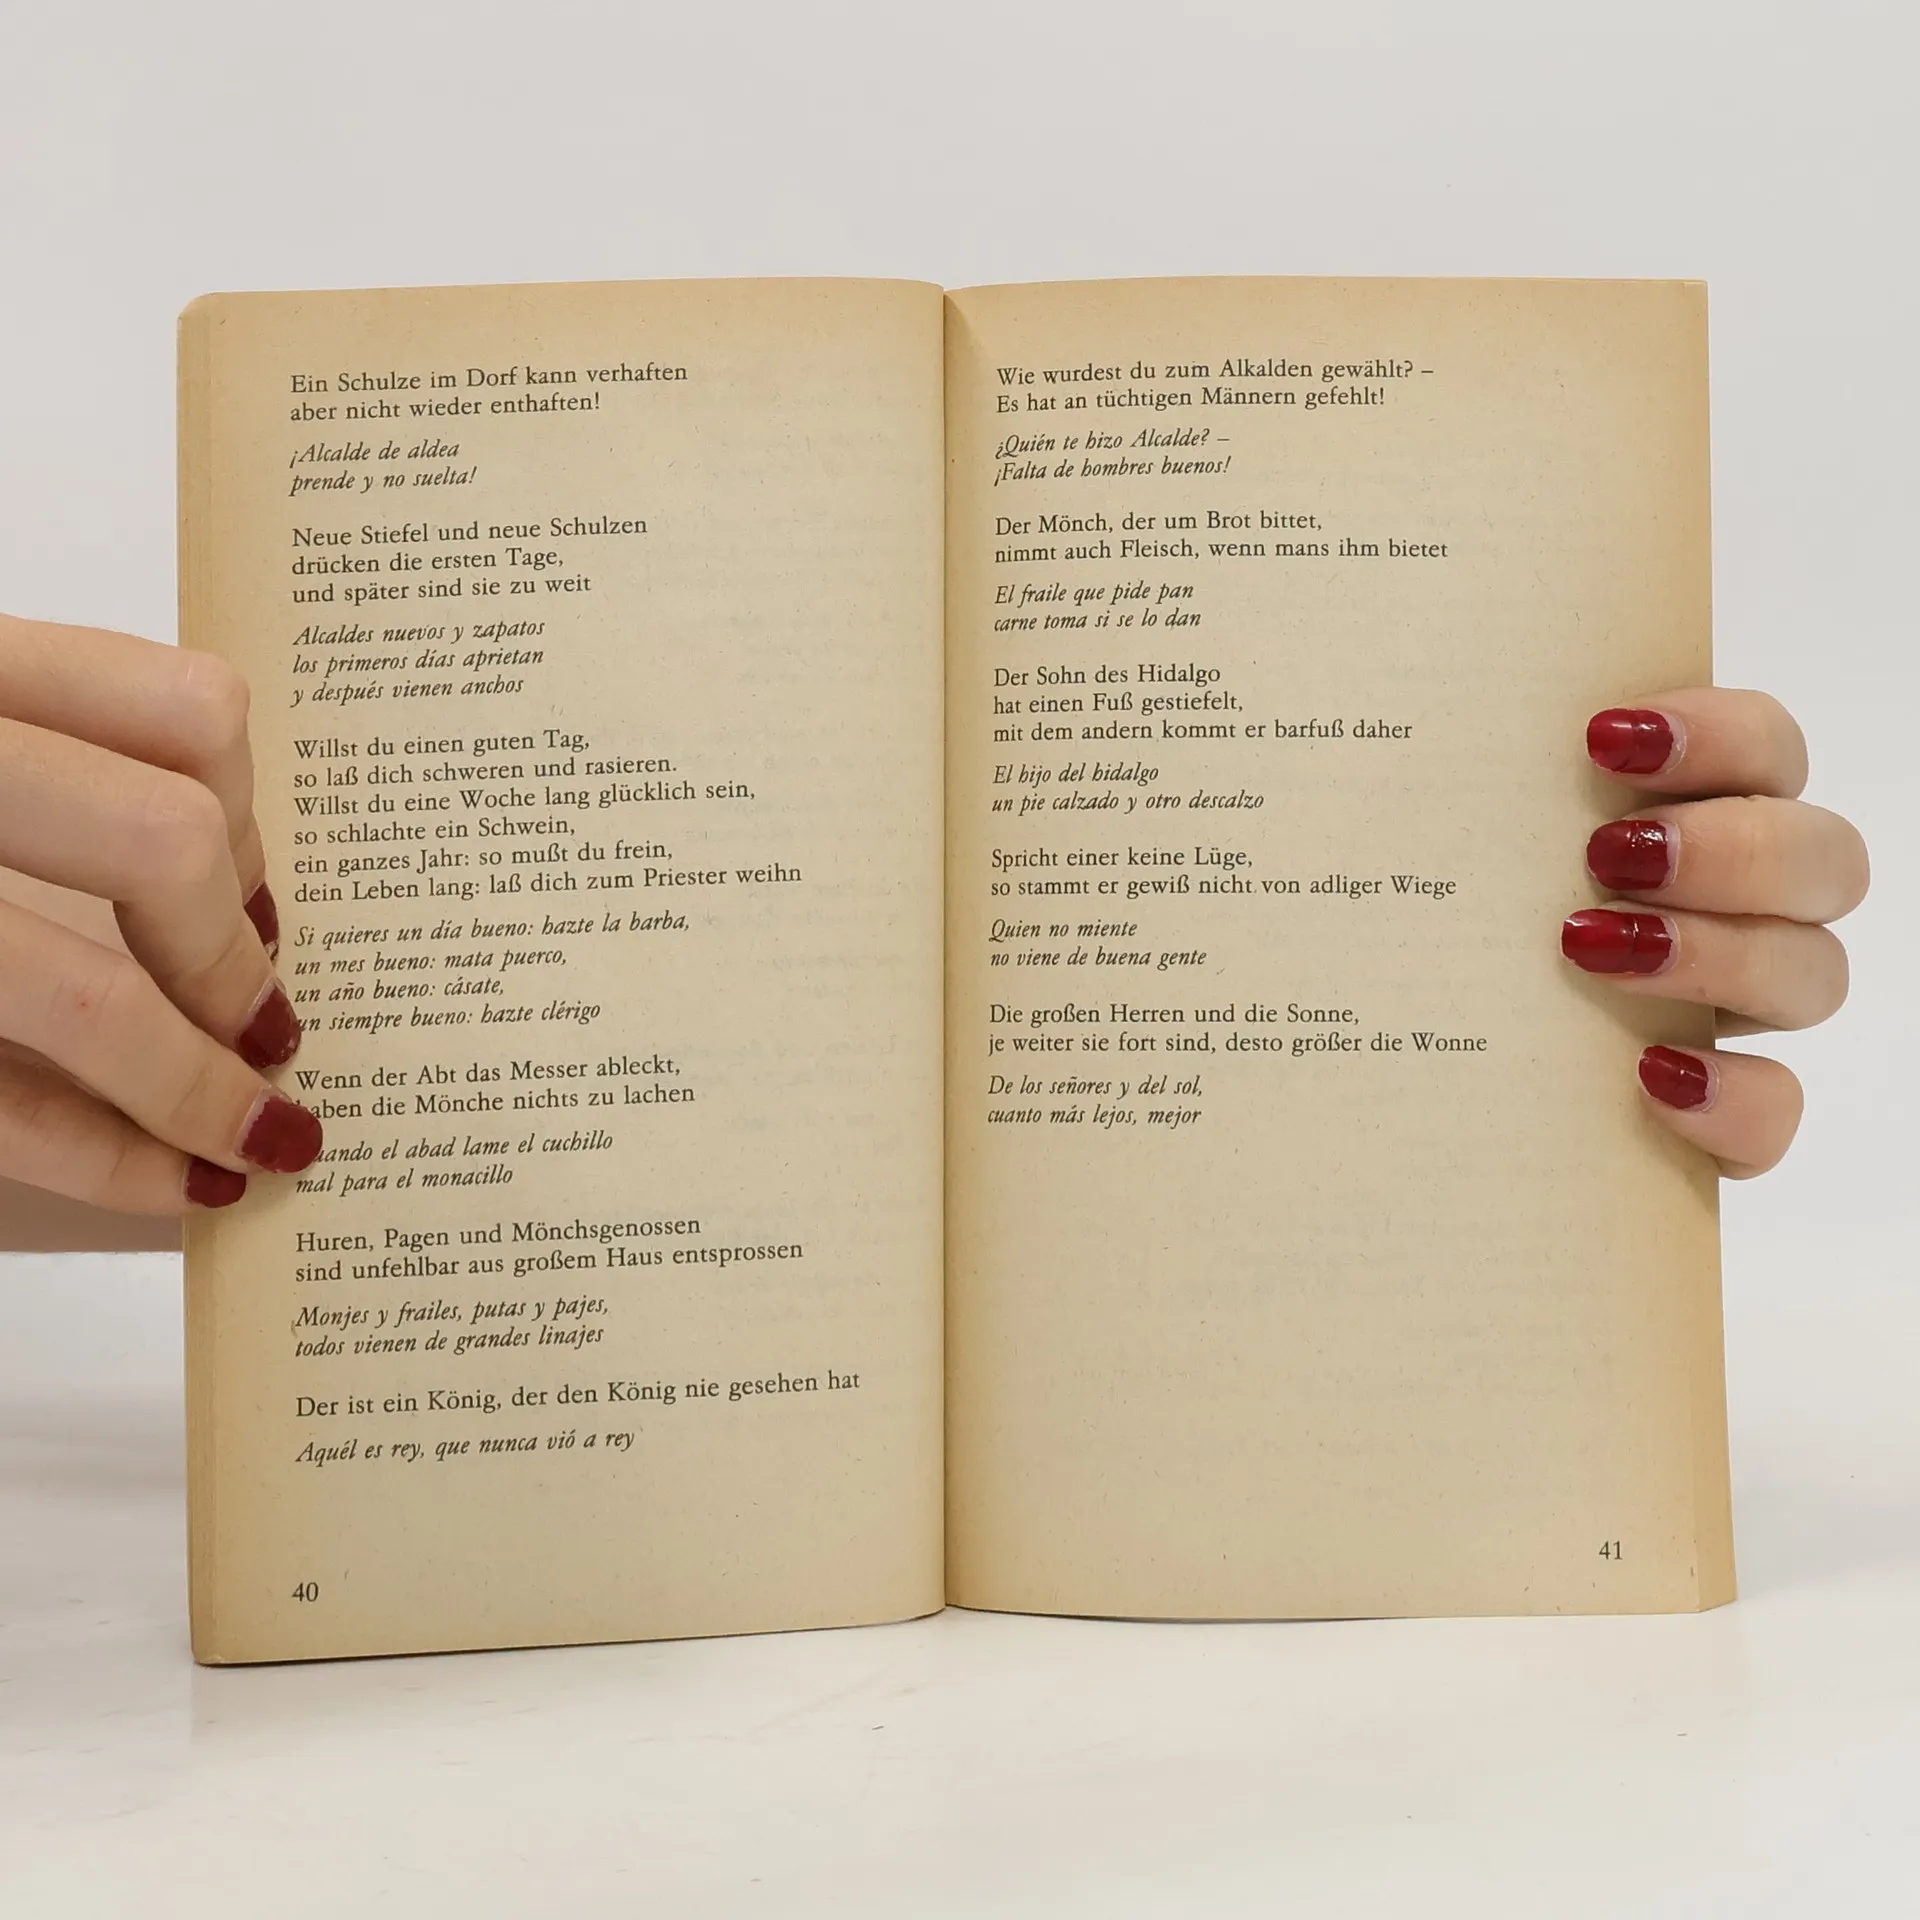 Ein Schulze im Dorf kann verhaften
aber nicht wieder enthaften!
¡Alcalde de aldea
prende y no suelta!
Neue Stiefel und neue Schulzen
drücken die ersten Tage,
und später sind sie zu weit
Alcaldes nuevos y zapatos
los primeros días aprietan
y después vienen anchos
Willst du einen guten Tag,
so laß dich schweren und rasieren.
Willst du eine Woche lang glücklich sein,
so schlachte ein Schwein,
ein ganzes Jahr: so mußt du frein,
dein Leben lang: laß dich zum Priester weihn
Si quieres un día bueno: hazte la barba,
un mes bueno: mata puerco,
un año bueno: cásate,
un siempre bueno: hazte clérigo
Wenn der Abt das Messer ableckt,
haben die Mönche nichts zu lachen
Cuando el abad lame el cuchillo
mal para el monacillo
Huren, Pagen und Mönchsgenossen
sind unfehlbar aus großem Haus entsprossen
Monjes y frailes, putas y pajes,
todos vienen de grandes linajes
Der ist ein König, der den König nie gesehen hat
Aquél es rey, que nunca vió a rey
40
Wie wurdest du zum Alkalden gewählt? –
Es hat an tüchtigen Männern gefehlt!
¿Quién te hizo Alcalde? –
¡Falta de hombres buenos!
Der Mönch, der um Brot bittet,
nimmt auch Fleisch, wenn mans ihm bietet
El fraile que pide pan
carne toma si se lo dan
Der Sohn des Hidalgo
hat einen Fuß gestiefelt,
mit dem andern kommt er barfuß daher
El hijo del hidalgo
un pie calzado y otro descalzo
Spricht einer keine Lüge,
so stammt er gewiß nicht von adliger Wiege
Quien no miente
no viene de buena gente
Die großen Herren und die Sonne,
je weiter sie fort sind, desto größer die Wonne
De los señores y del sol,
cuanto más lejos, mejor
41